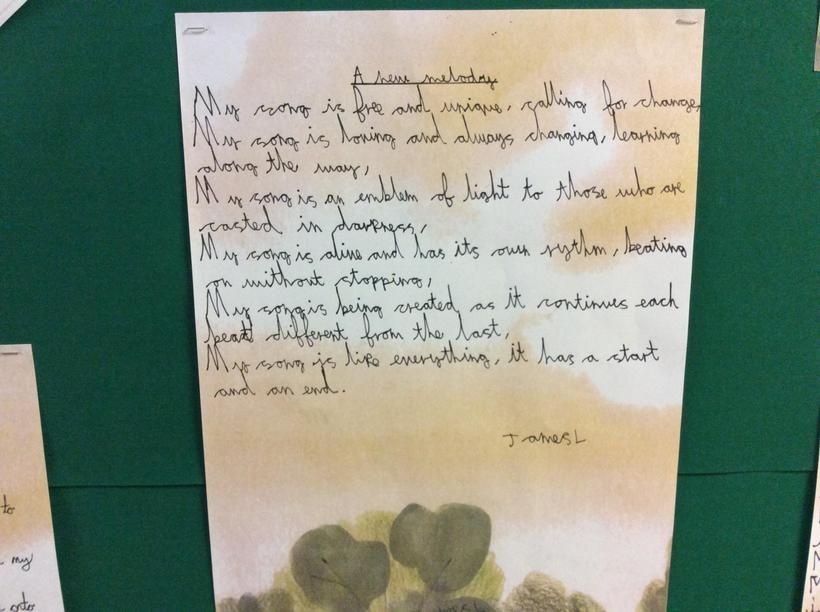 A new melody
My song is free and unique, calling for change,
My song is loving and always changing, learning
along the way,
My song is an emblem of light to those who are
casted in darkness,
My song is alive and has its own rythm, beating
on without stopping,
My song is being created as it continues each
beat different from the last,
My song is like everything, it has a start
and an end.
James L
to
my
onto